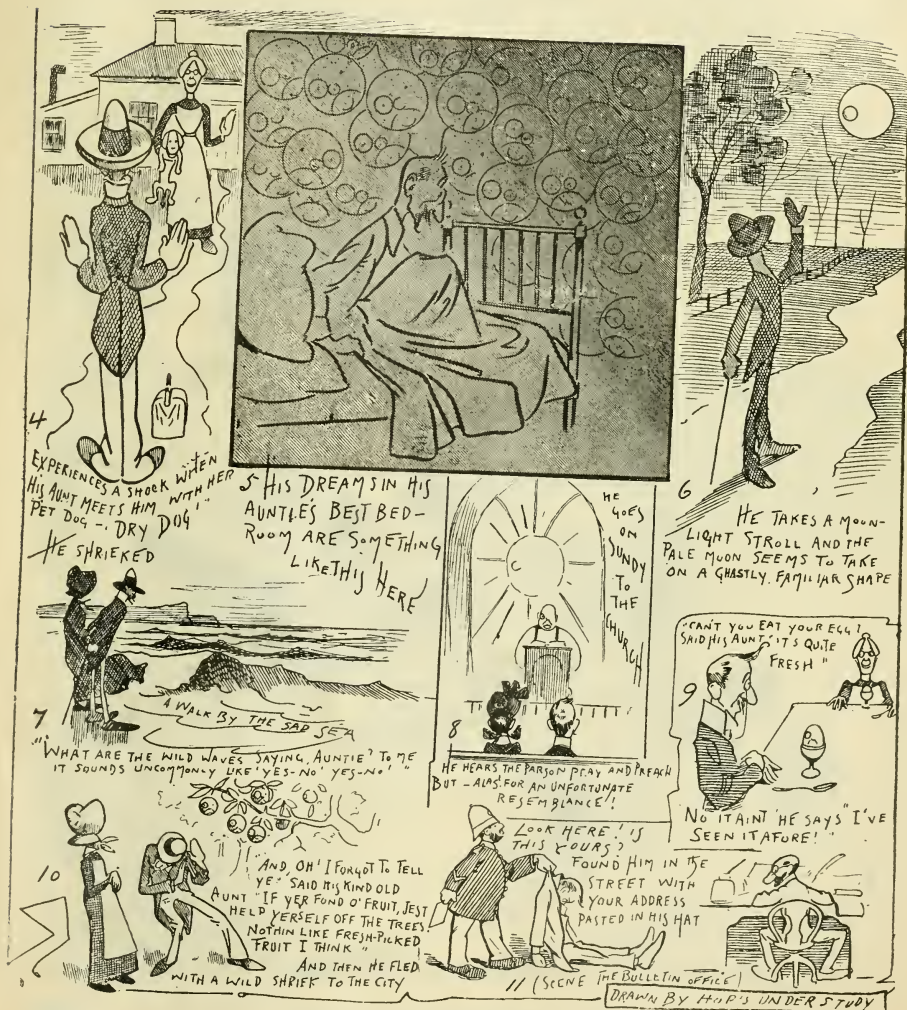 4
EXPERIENCES A SHOCK WHEN
HIS AUNT MEETS HIM WITH HER
PET DOG - "DRY DOG"
HE SHRIEKED
5 HIS DREAMS IN HIS
AUNTIE'S BEST BED-
ROOM ARE SOMETHING
LIKE THIS HERE
6
HE TAKES A MOON-
LIGHT STROLL AND THE
PALE MOON SEEMS TO TAKE
ON A GHASTLY, FAMILIAR SHAPE
7
A WALK BY THE SAD SEA
"WHAT ARE THE WILD WAVES SAYING, AUNTIE? TO ME
IT SOUNDS UNCOMMONLY LIKE 'YES-NO' 'YES-NO'"
8
HE
GOES
ON
SUNDY
TO
THE
CHURCH
HE HEARS THE PARSON PRAY AND PREACH
BUT - ALAS! FOR AN UNFORTUNATE
RESEMBLANCE!
9
"CAN'T YOU EAT YOUR EGG?
SAID HIS AUNT "IT'S QUITE
FRESH"
NO IT AINT' HE SAYS "I'VE
SEEN IT AFORE!"
10
"AND, OH! I FORGOT TO TELL
YE" SAID HIS KIND OLD
AUNT "IF YER FOND O' FRUIT, JEST
HELD YERSELF OFF THE TREES
NOTHIN LIKE FRESH-PICKED
FRUIT I THINK"
AND THEN HE FLED
WITH A WILD SHRIEK TO THE CITY
LOOK HERE! IS
THIS YOURS?
FOUND HIM IN THE
STREET WITH
YOUR ADDRESS
PASTED IN HIS HAT
11 (SCENE THE BULLETIN OFFICE)
DRAWN BY HOP'S UNDERSTUDY